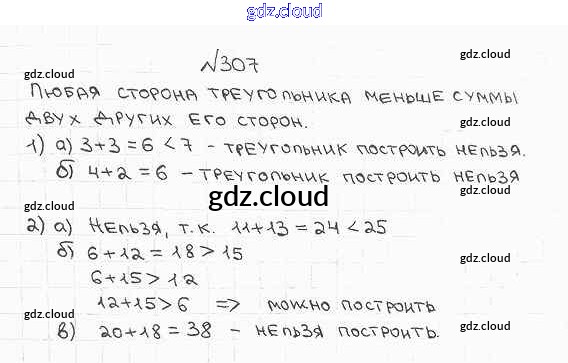 gdz.cloud
№307
gdz.cloud
gdz.cloud
Любая сторона треугольника меньше суммы
двух других его сторон.
gdz.cloud
gdz.cloud
1) а) 3+3=6<7 - треугольник построить нельзя.
б) 4+2=6 - треугольник построить нельзя
gdz.cloud
gdz.cloud
gdz.cloud
2) а) Нельзя, т.к. 11+13=24<25
б) 6+12=18>15
gdz.cloud
gdz.cloud
6+15>12
12+15>6 => можно построить
gdz.cloud
gdz.cloud
в) 20+18=38 - нельзя построить.
gdz.cloud
gdz.cloud